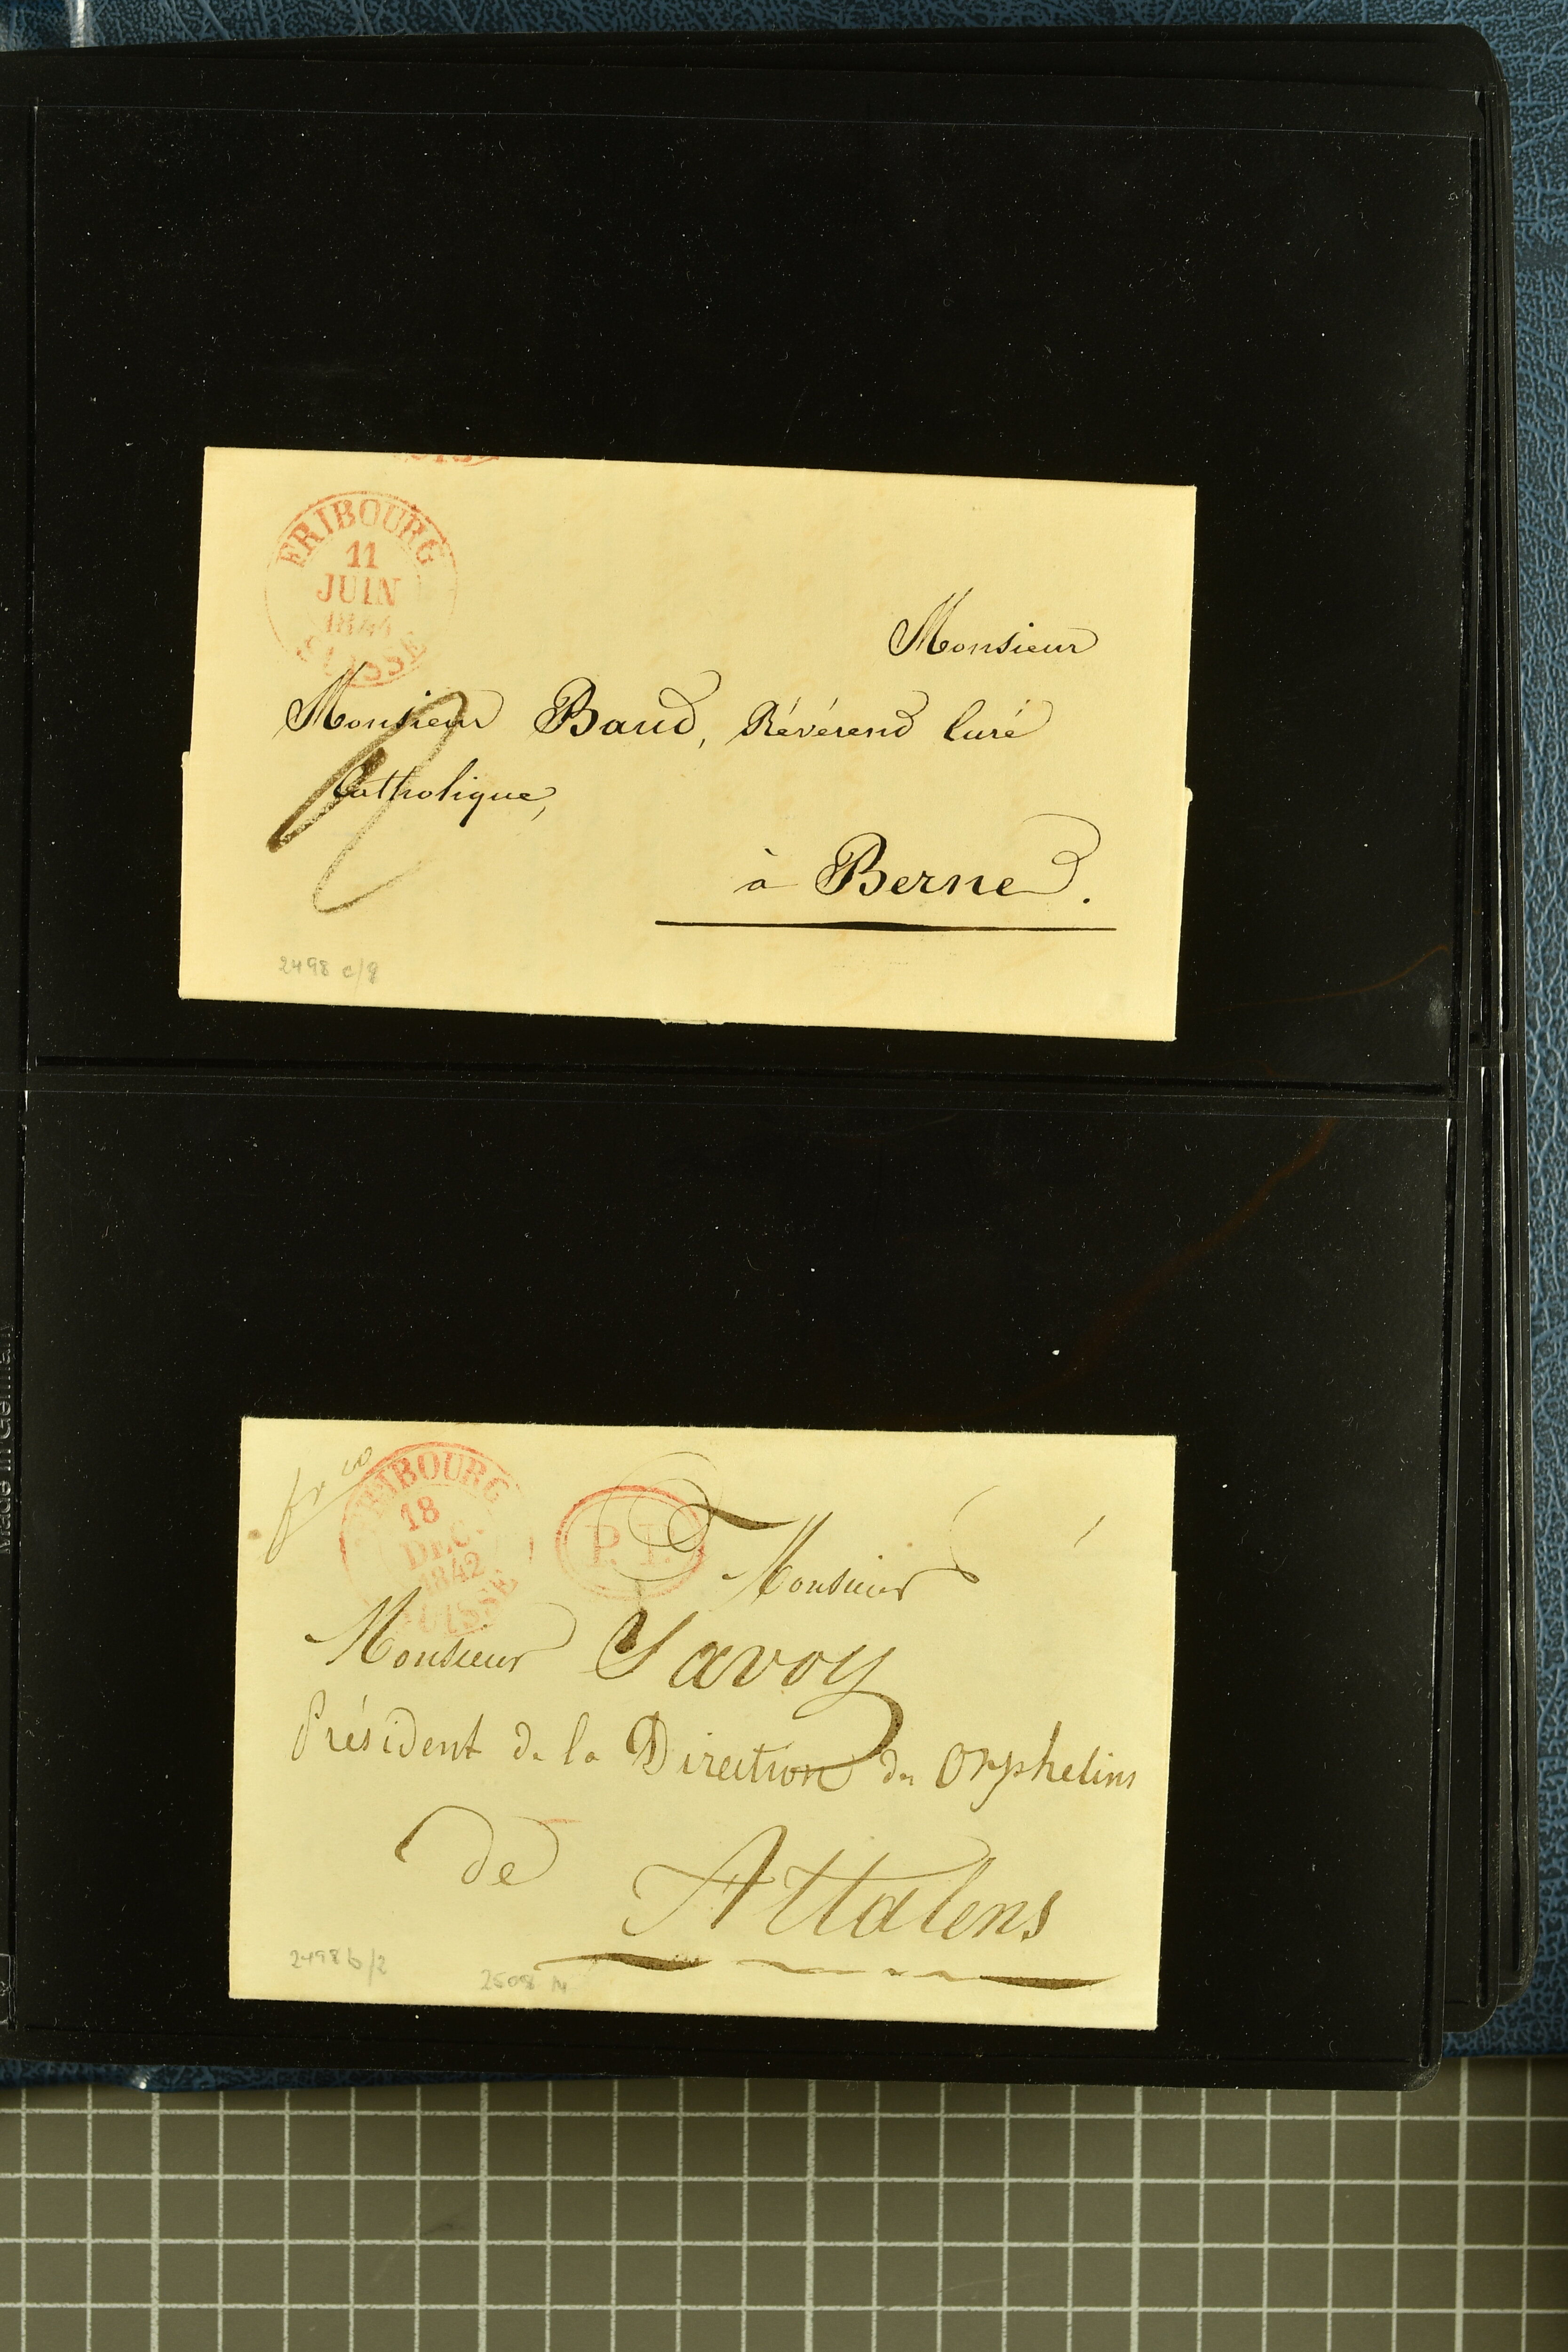 FRIBOURG
11
JUIN
1844
SUISSE
Monsieur
Monsieur Baud, Révérend Curé
Catholique,
à Berne.
2498 c/8
Made in Germany
frco
FRIBOURG
18
DEC.
1842
SUISSE
P.P.
Monsieur
Monsieur Savoy
Président de la Direction des Orphelins
de Attalens
2498 b/2
2508